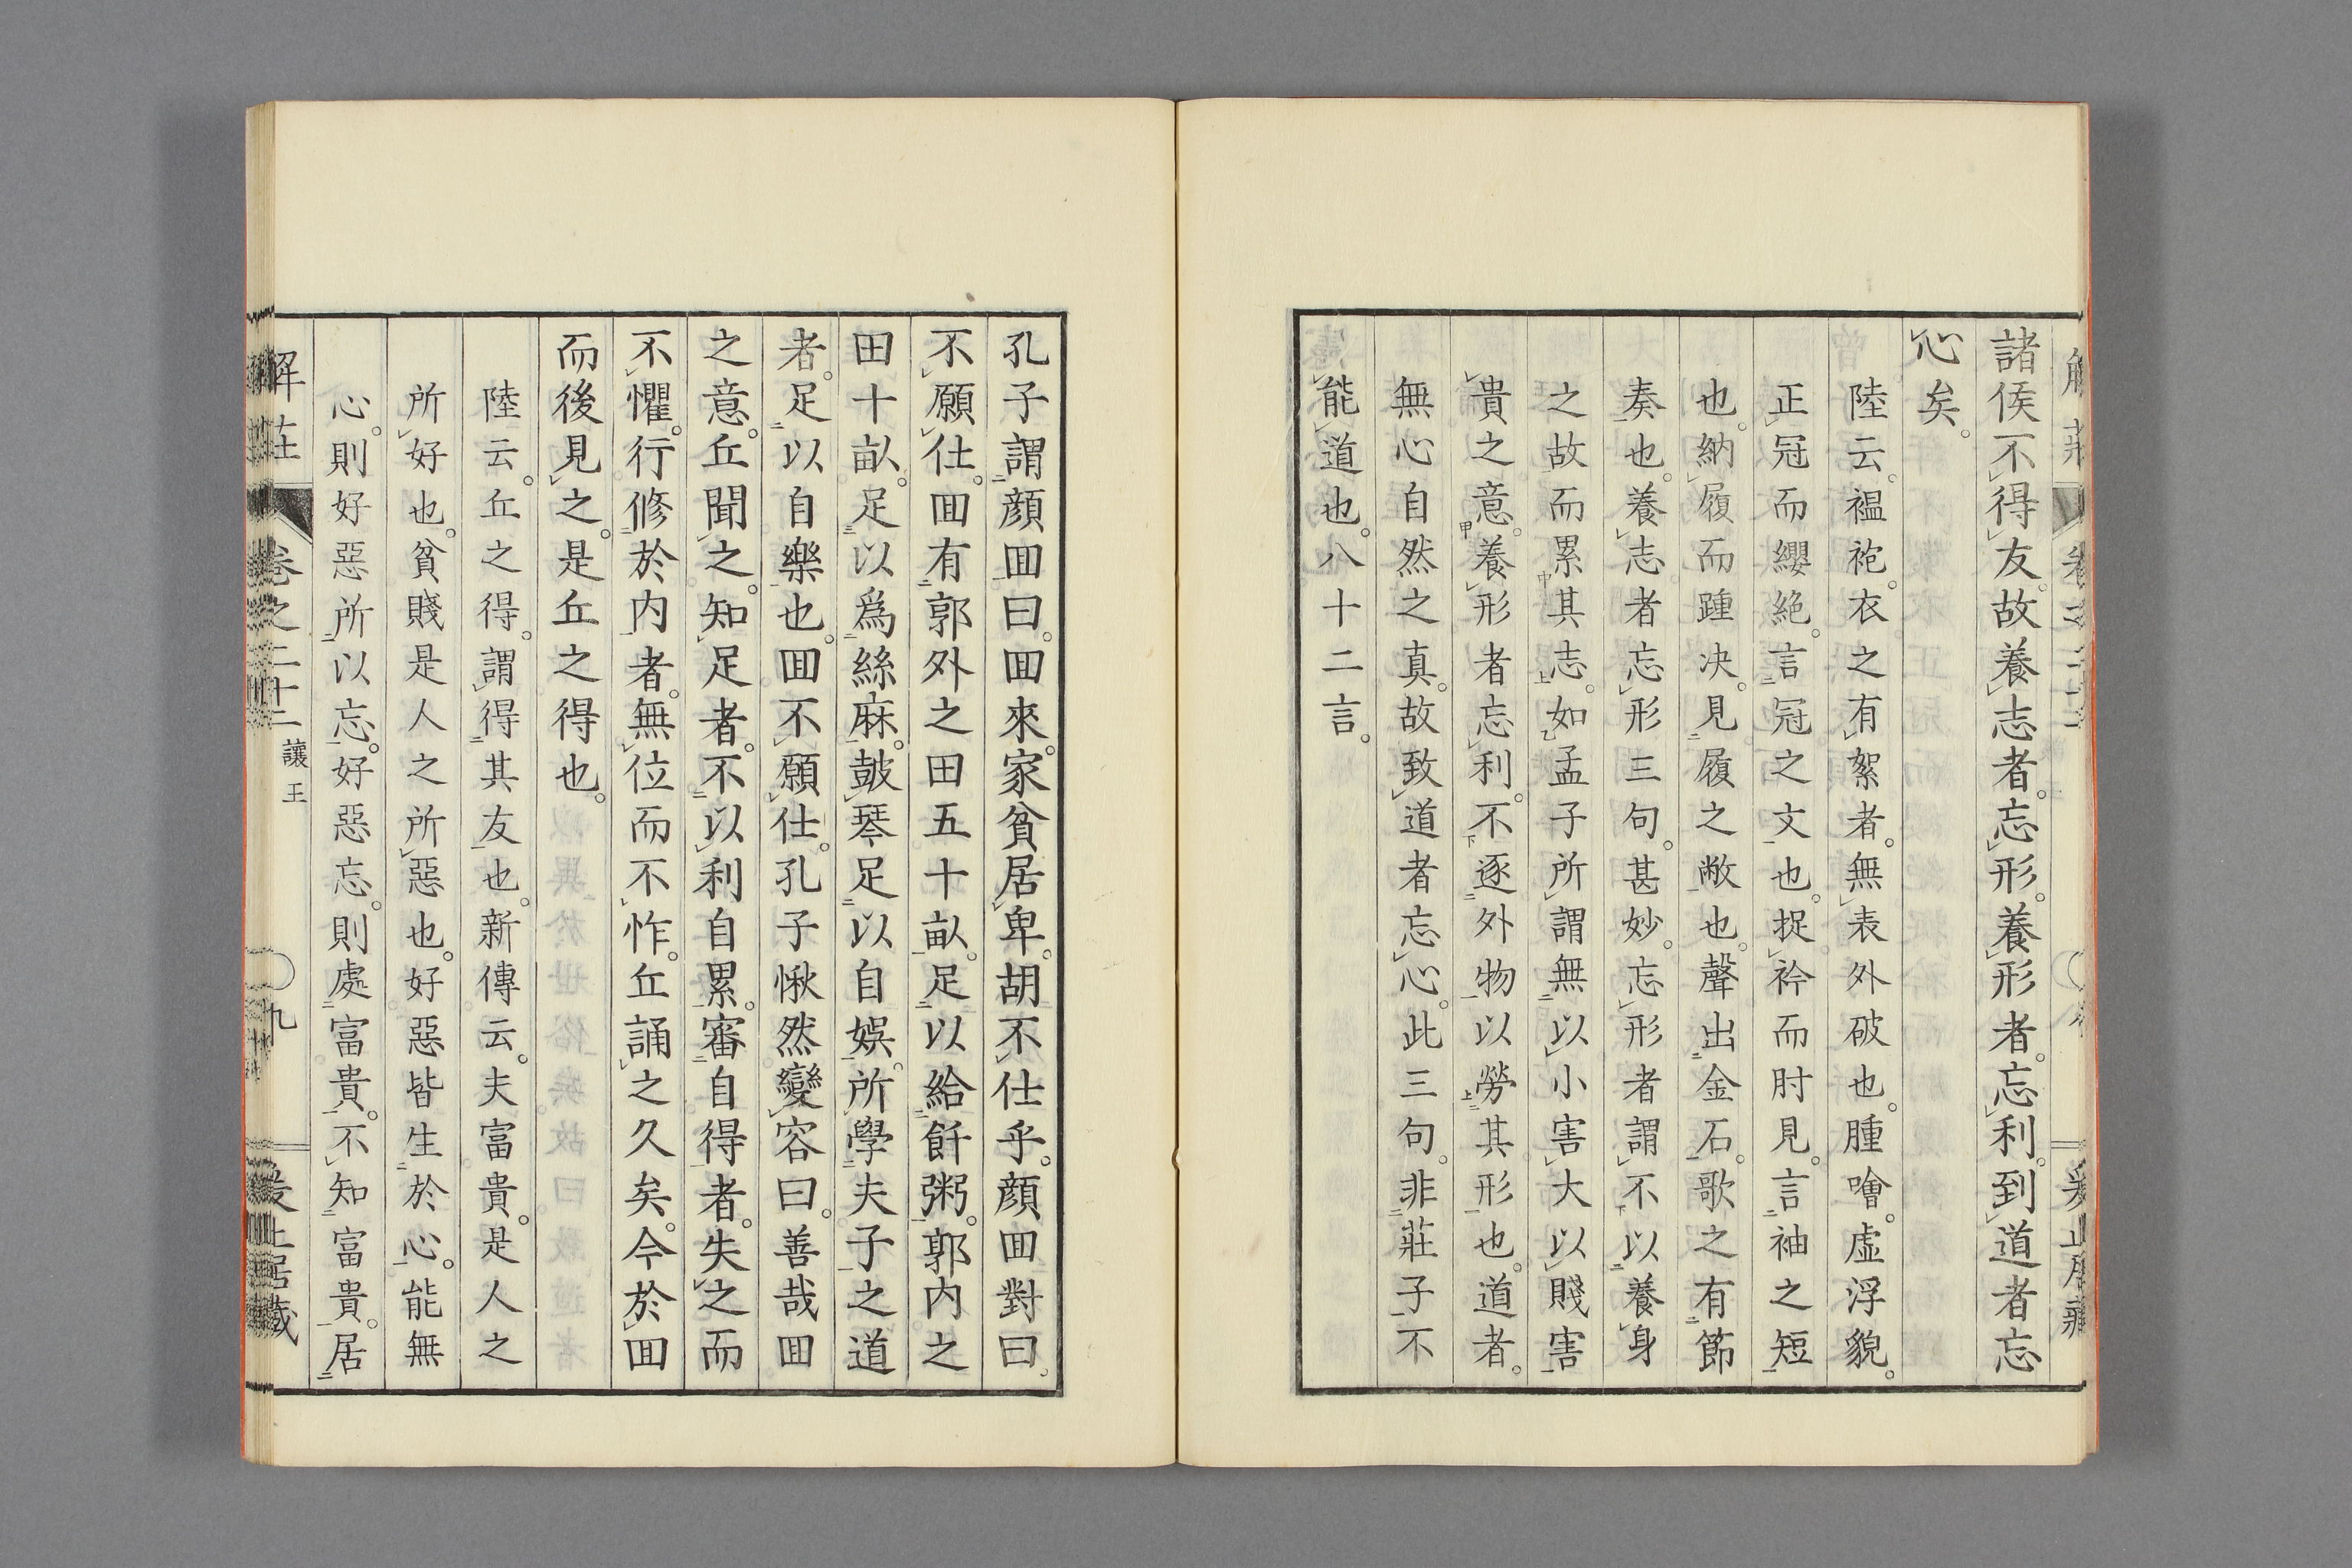 諸侯不得友。故養志者。忘形。養形者。忘利。到道者忘
心矣。
陸云。褞袍。衣之有絮者。無表外破也。腫噲。虛浮貌。
正冠而纓絕。言冠之文也。捉衿而肘見。言袖之短
也。納履而踵决。見履之敝也。聲出金石。歌之有節
奏也。養志者忘形三句。甚妙。忘形者謂不以養身
之故而累其志。如孟子所謂無以小害大以賤害
貴之意。養形者忘利。不逐外物以勞其形也。道者。
無心自然之真。故致道者忘心。此三句。非莊子不
能道也。八十二言。
孔子謂顔囬曰。囬來。家貧居卑。胡不仕乎。顔囬對曰。
不願仕。囬有郭外之田五十畝。足以給飦粥。郭内之
田十畝。足以爲絲麻。鼓琴足以自娯。所學夫子之道
者。足以自樂也。囬不願仕。孔子愀然變容曰。善哉囬
之意。丘聞之。知足者。不以利自累。審自得者。失之而
不懼。行修於内者。無位而不怍。丘誦之久矣。今於囬
而後見之。是丘之得也。
陸云。丘之得。謂得其友也。新傳云。夫富貴。是人之
所好也。貧賤是人之所惡也。好惡皆生於心。能無
心。則好惡所以忘。好惡忘。則處富貴。不知富貴。居
解莊
卷之二十二
讓王
九